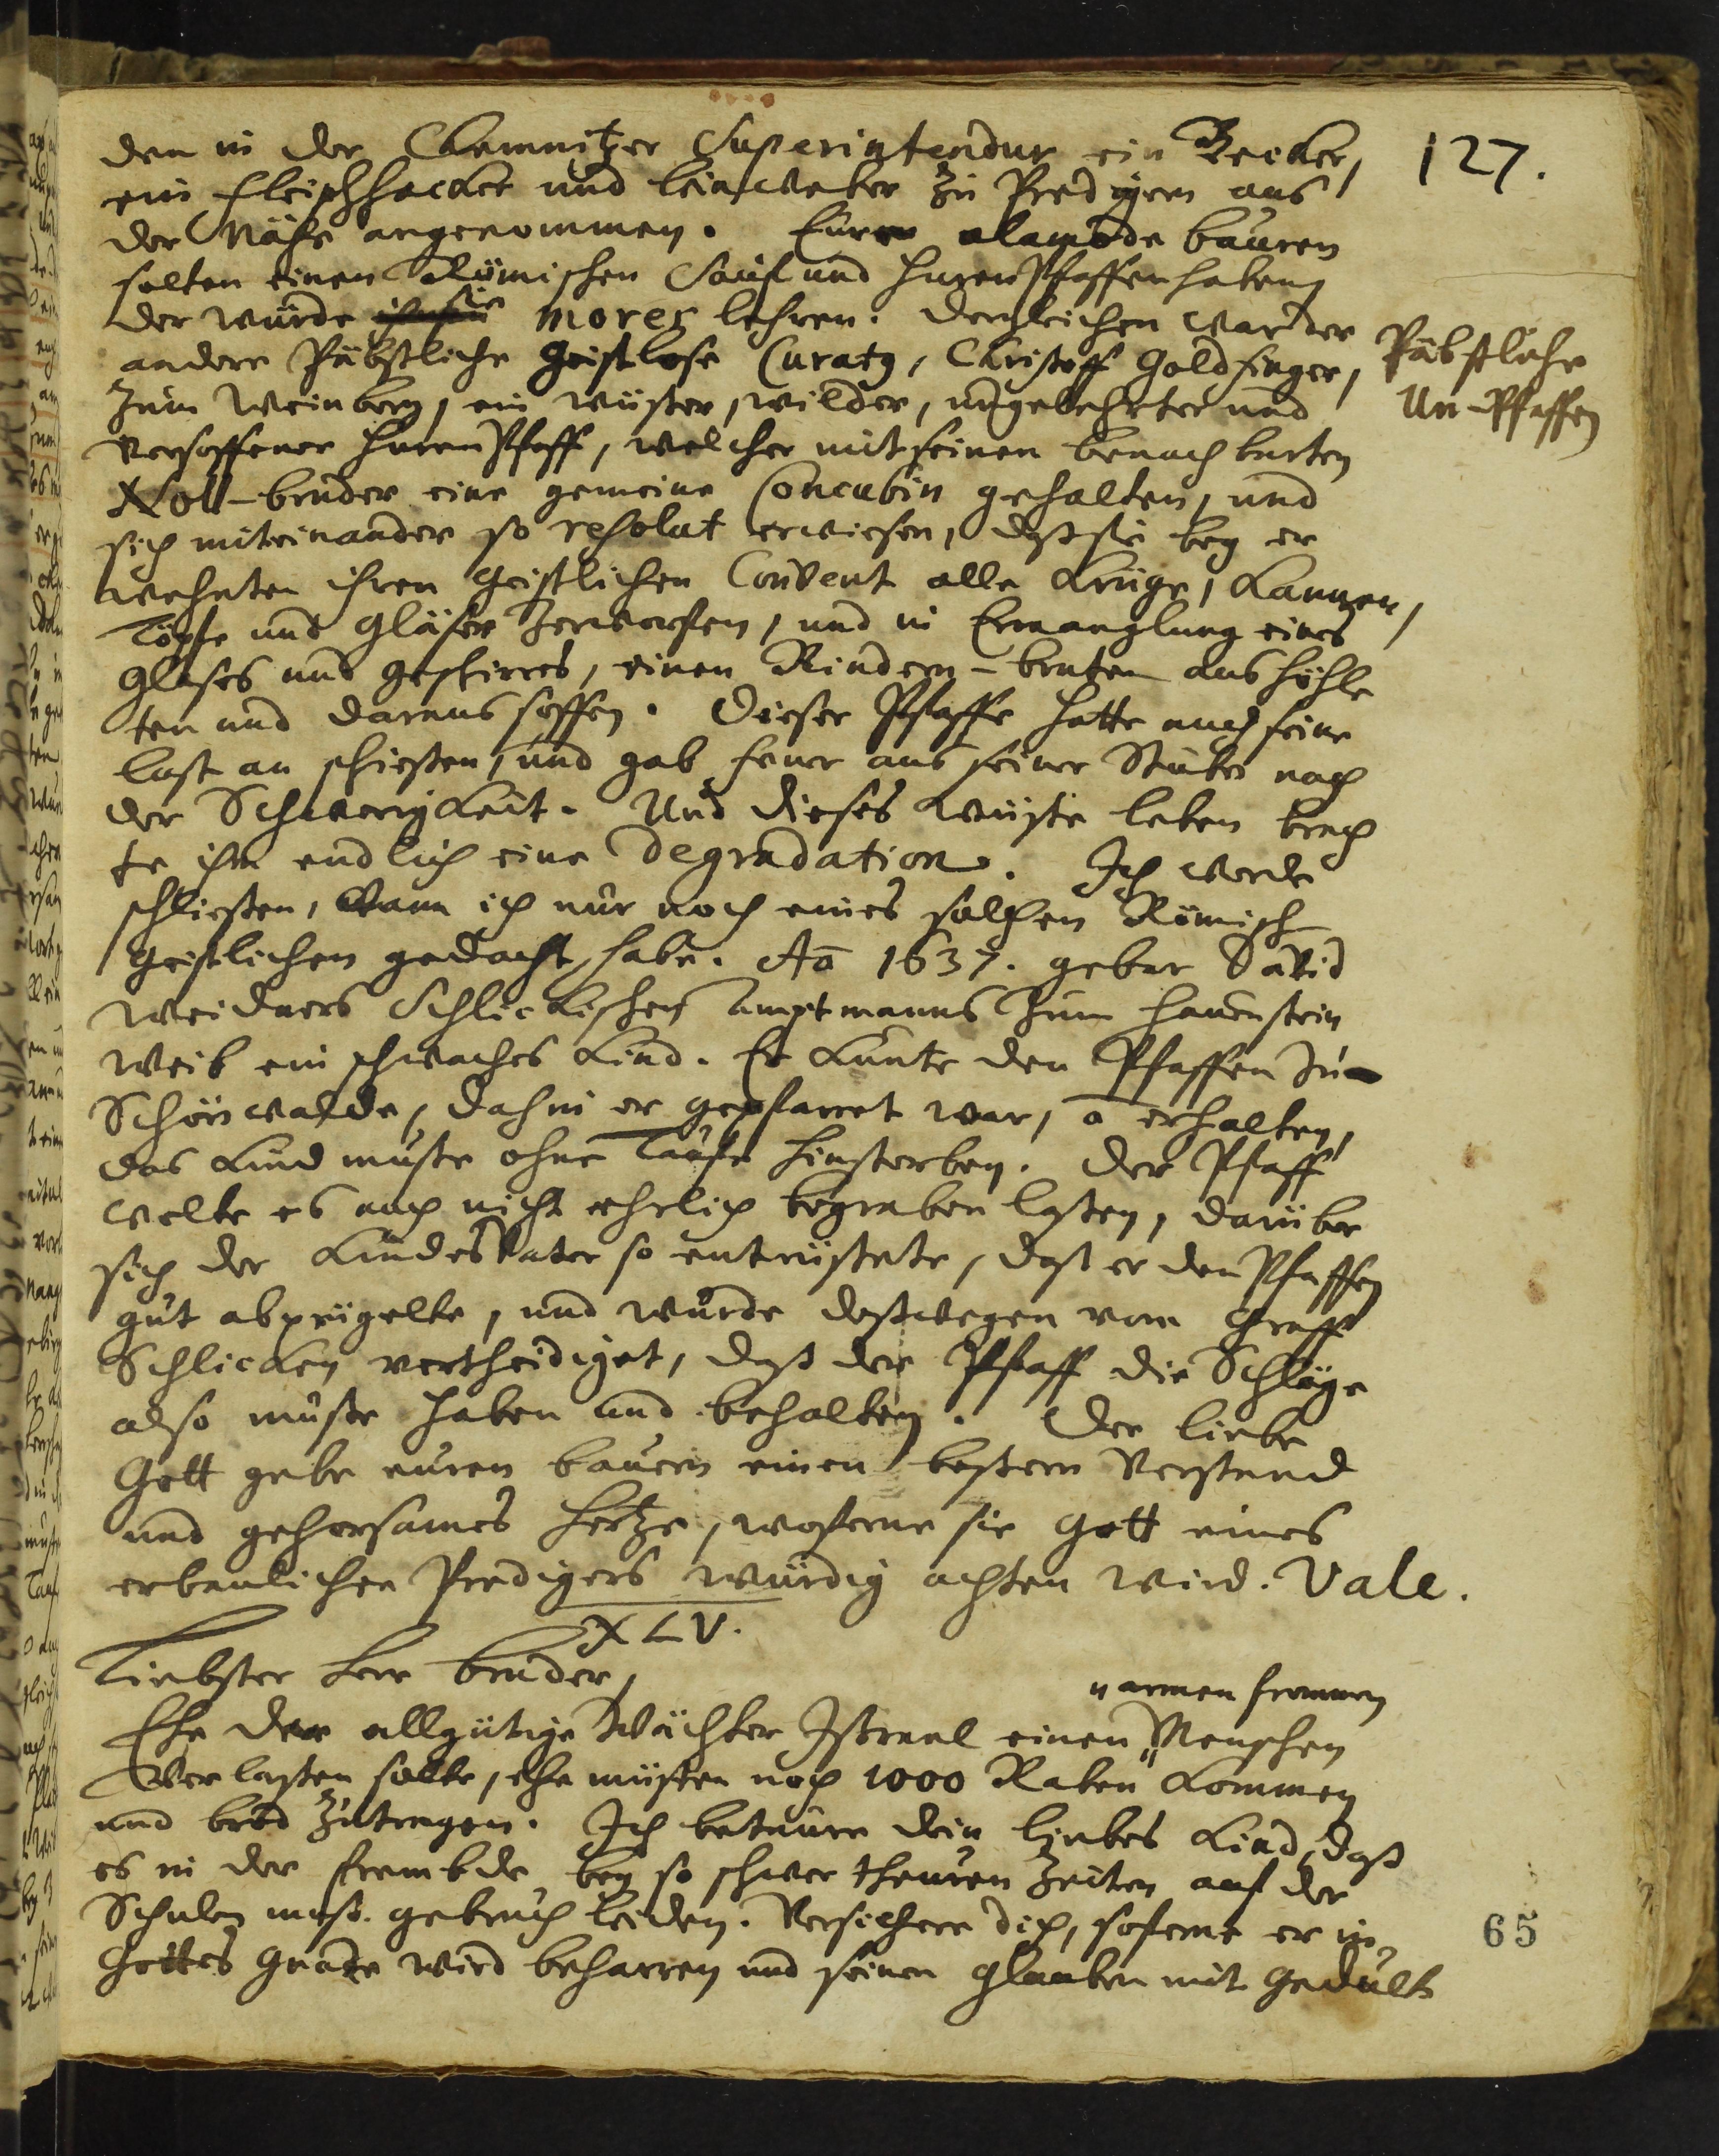 127.
den in der Chemnitzer Superintendur ein Becker,
ein Fleischhacker und Leinweber zu Predigern aus
der Nähe angenommen. Eure alamode bauren
solten einen Römischen Sauf und HurenPfaffen haben
der würde sie mores lehren. Dergleichen war der
andere Päbstliche Geistlose Curaty, Christoff Goldfinger,
Päbstliche
Un-Pfaffen
zum Weinberg, ein wüster, wilder, ungelehrter und
versoffener HurenPfaff, welcher mit seinen benachbarten
Noll-bruder eine gemeine Concubin gehalten, und
sich miteinander so resolut erwiesen, daß sie bey er
wehnten ihren Geistlichen Convent alle Krüge, Kannen,
Töpfe und Gläser zerworfen, und in Ermanglung eines
Glases und Geschirres, einen Rindern-braten aus höhle
ten und daraus soffen. Dieser Pfaffe hatte auch seine
lust an schießen, und gab feuer aus seiner Stuben nach
der Schwerigkeit. Und dieses wüste leben brach
te ihm endlich eine Degradation. Ich werde
schließen, wann ich nur noch eines solchen Römisch
Geistlichen gedacht habe. Ao 1637. gebar David
Weidners Schlickischen Amptmanns zum Hauenstein
Weib ein schwaches Kind. Er kunte den Pfaffen zu
Schönwalde, dahin er gepfarret war, ō erhalten,
das Kind muste ohne Taufe hinsterben. Der Pfaff
wolte es auch nicht ehrlich begraben laßen, darüber
sich der KindesVater so entrüstete, daß er den Pfaffen
gut abprügelte, und wurde deßwegen vom Graff
Schlicken vertheidiget, daß der Pfaff die Schläge
also muste haben und behalten. Der liebe
Gott gebe euren bauern einen beßern Verstand
und gehorsames Hertze, woferne sie Gott eines
erbaulichen Predigers würdig achten wird. Vale.
XLV.
Liebster Herr bruder,
" armen frommen
Ehe der allgütige Wächter Israel einen " Menschen
Verlaßen solte, ehe müsten noch 1000 Raben kommen
und brod zutragen. Ich betaure dein liebes Kind, daß
es in der frembde bey so schwer theuren Zeiten auf der
Schulen muß gebruch leiden. Versichere dich, soferne er in
Gottes Gnade wird beharren und seinen Glauben mit Gedult
65